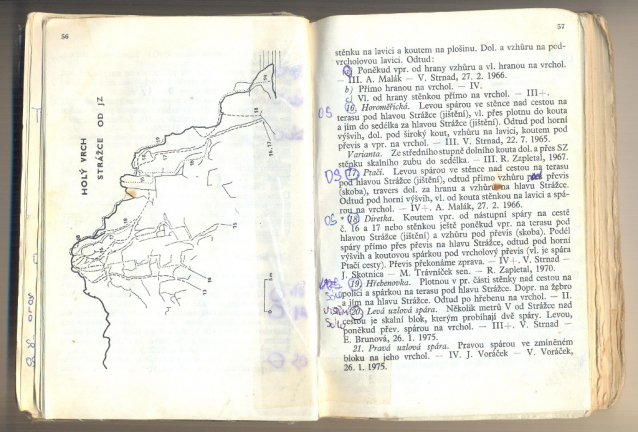 56
HOLÝ VRCH
STRÁŽCE OD JZ
57
stěnku na lavici a koutem na plošinu. Dol. a vzhůru na pod-
vrcholovou lavici. Odtud:
a) Poněkud vpr. od hrany vzhůru a vl. hranou na vrchol.
— III. A. Malák — V. Strnad, 27. 2. 1966.
b) Přímo hranou na vrchol. — IV.
c) Vl. od hrany stěnkou přímo na vrchol. — III+.
OS 16. Horoměřická. Levou spárou ve stěnce nad cestou na
terasu pod hlavou Strážce (jištění), vl. přes plotnu do kouta
a jím do sedélka za hlavou Strážce (jištění). Odtud pod horním
výšvih, dol. pod široký kout, vzhůru na lavici, koutem pod
převis a vpr. na vrchol. — III. V. Strnad, 22. 7. 1965.
Varianta. Ze středního stupně dolního kouta dol. a přes SZ
stěnku skalního zubu do sedélka. — III. R. Zapletal, 1967.
OS 17. Ptačí. Levou spárou ve stěnce nad cestou na terasu
pod hlavou Strážce (jištění), odtud přímo vzhůru pod převis
(skoba), travers dol. za hranu a vzhůru na hlavu Strážce.
Odtud pod horní výšvih, vl. od kouta stěnkou na lavici a spá-
rou na vrchol. — IV+. A. Malák, 27. 2. 1966.
OS + 18. Diretka. Koutem vpr. od nástupní spáry na cestě
č. 16 a 17 nebo stěnkou ještě poněkud vpr. na terasu pod
hlavou Strážce (jištění) a vzhůru pod převis (skoba). Podél
spáry přímo přes převis na hlavu Strážce, odtud pod horní
výšvih a koutovou spárkou pod vrcholový převis (vl. je spára
Ptačí cesty). Převis překonáme zprava. — IV+. V. Strnad —
J. Skotnica — M. Trávníček sen. — R. Zapletal, 1970.
19. Hřebenovka. Plotnou v pr. části stěnky nad cestou na
polici a spárkou na terasu pod hlavu Strážce. Dopr. na žebro
a jím na hlavu Strážce. Odtud po hřebenu na vrchol. — II.
20. Levá uzlová spára. Několik metrů V od Strážce nad
cestou je skalní blok, kterým probíhají dvě spáry. Levou,
poněkud přev. spárou na vrchol. — III+. V. Strnad —
E. Brunová, 26. 1. 1975.
21. Pravá uzlová spára. Pravou spárou ve zmíněném
bloku na jeho vrchol. — IV. J. Voráček — V. Voráček,
26. 1. 1975.